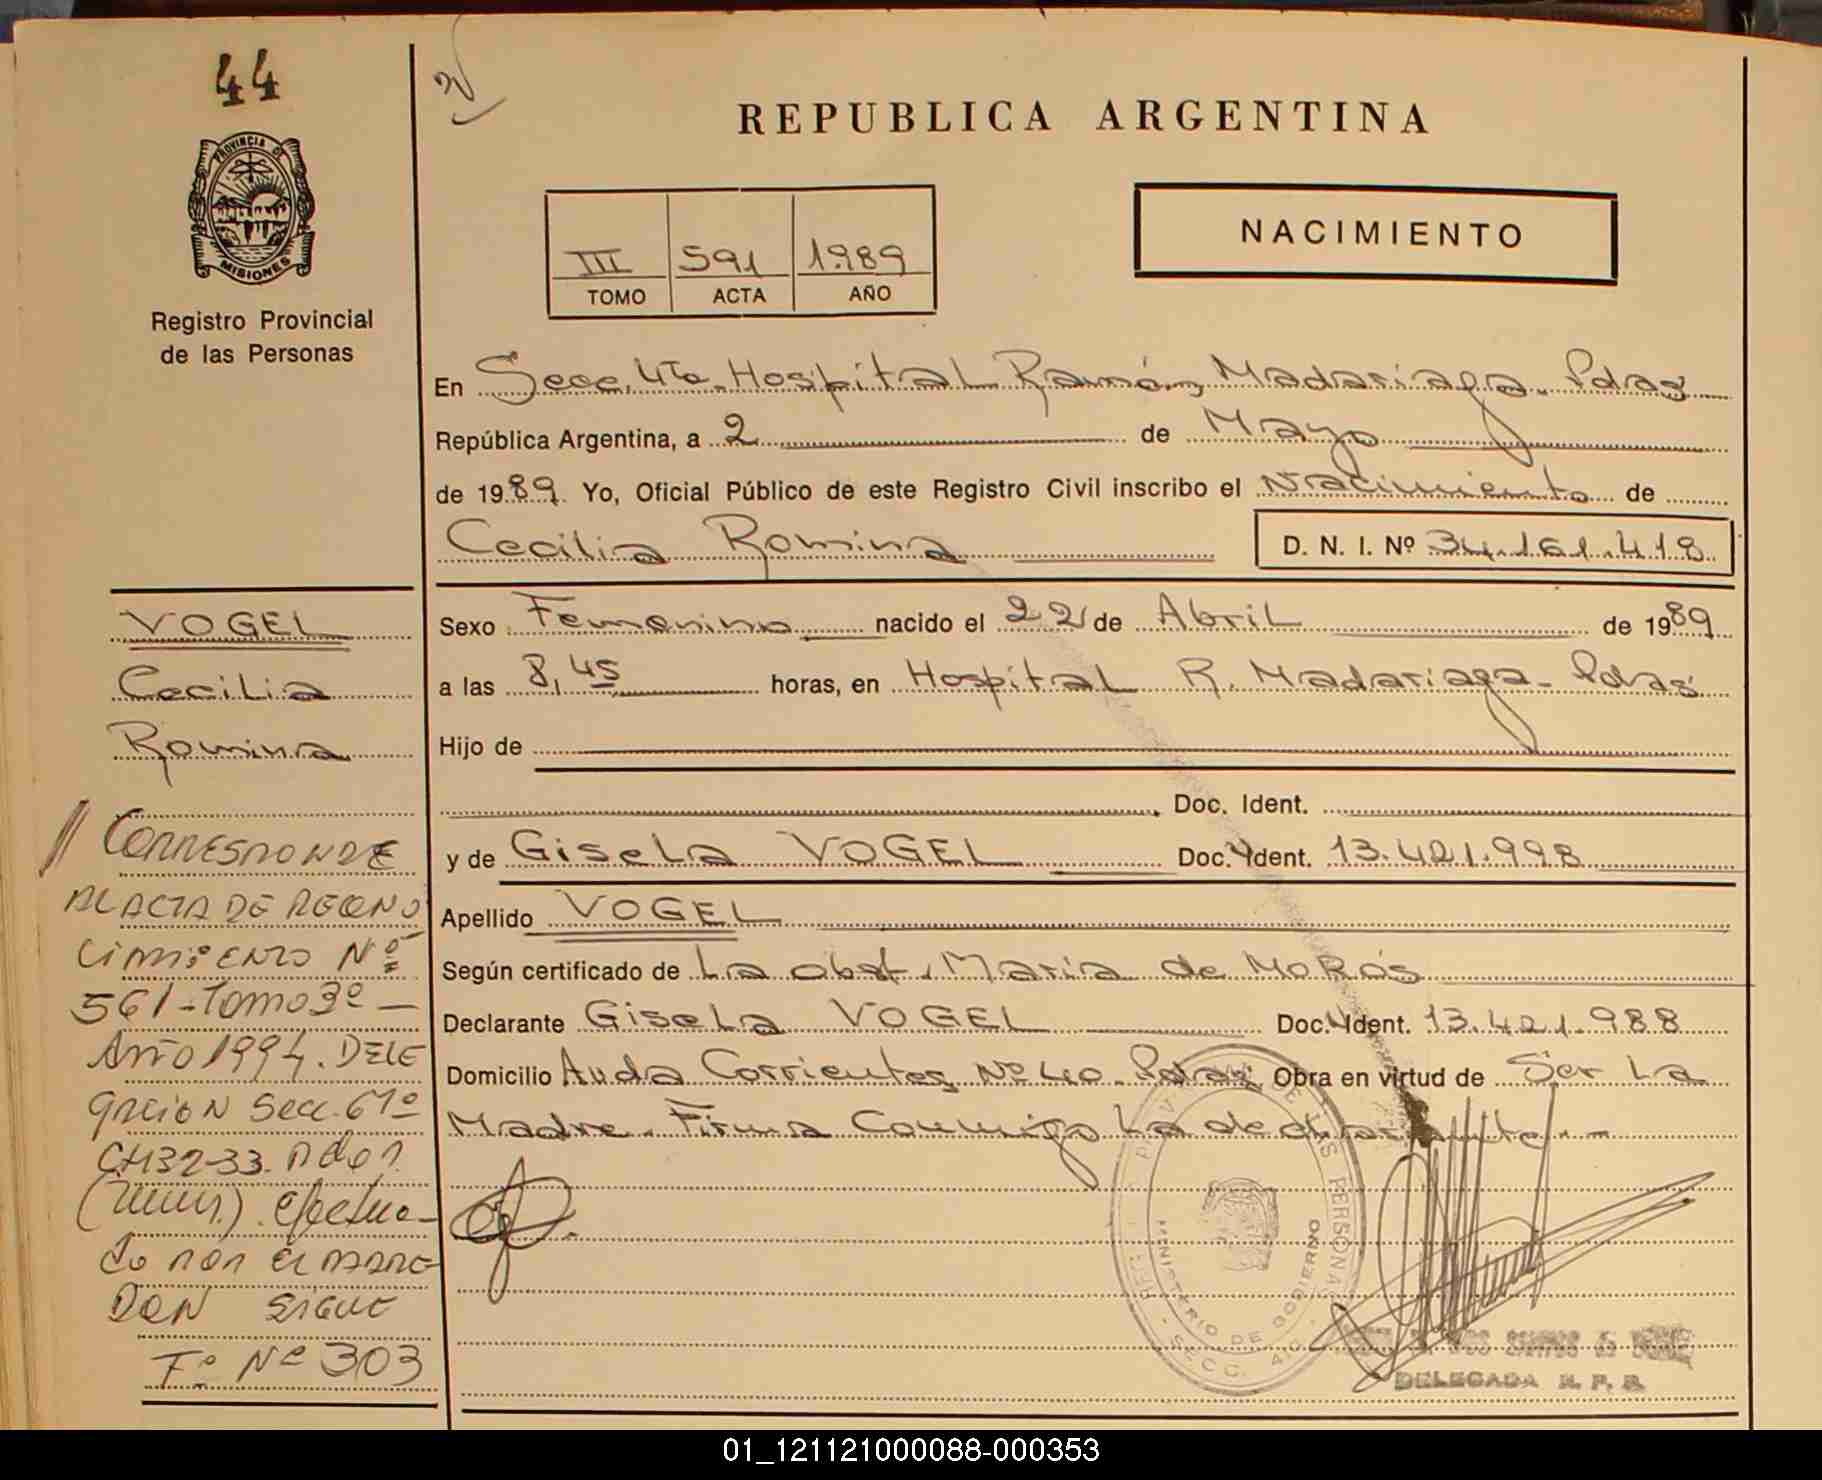 44
PROVINCIA DE
MISIONES
Registro Provincial
de las Personas
REPUBLICA ARGENTINA
III 591 1989
TOMO ACTA AÑO
NACIMIENTO
En Secc. 4ta. Hospital Ramón Madariaga. Pdas
República Argentina, a 2 de Mayo
de 1989. Yo, Oficial Público de este Registro Civil inscribo el Nacimiento de
Cecilia Romina D. N. I. Nº 34.161.418
Sexo Femenino nacido el 22 de Abril de 1989
a las 8,45 horas, en Hospital R. Madariaga - Pdas
Hijo de
Doc. Ident.
y de Gisela VOGEL Doc. Ident. 13.421.998
Apellido VOGEL
Según certificado de La obst. María de MoRós
Declarante Gisela VOGEL Doc. Ident. 13.421.988
Domicilio Avda Corrientes Nº 40. Pdas Obra en virtud de Ser La
Madre. Firma Conmigo La declarante.-
VOGEL
Cecilia
Romina
// CORRESPONDE
AL ACTA DE RECONO
CIMIENTO Nº
561-Tomo 3º-
AÑO 1994. DELE
gacion Secc. 6tº
CH 32-33. Pdas.
efectua-
do por el padre
DON SIGUE
Fº Nº 303
MINISTERIO DE GOBIERNO
SECC. 4
DELEGADA R. P. P.
01_121121000088-000353